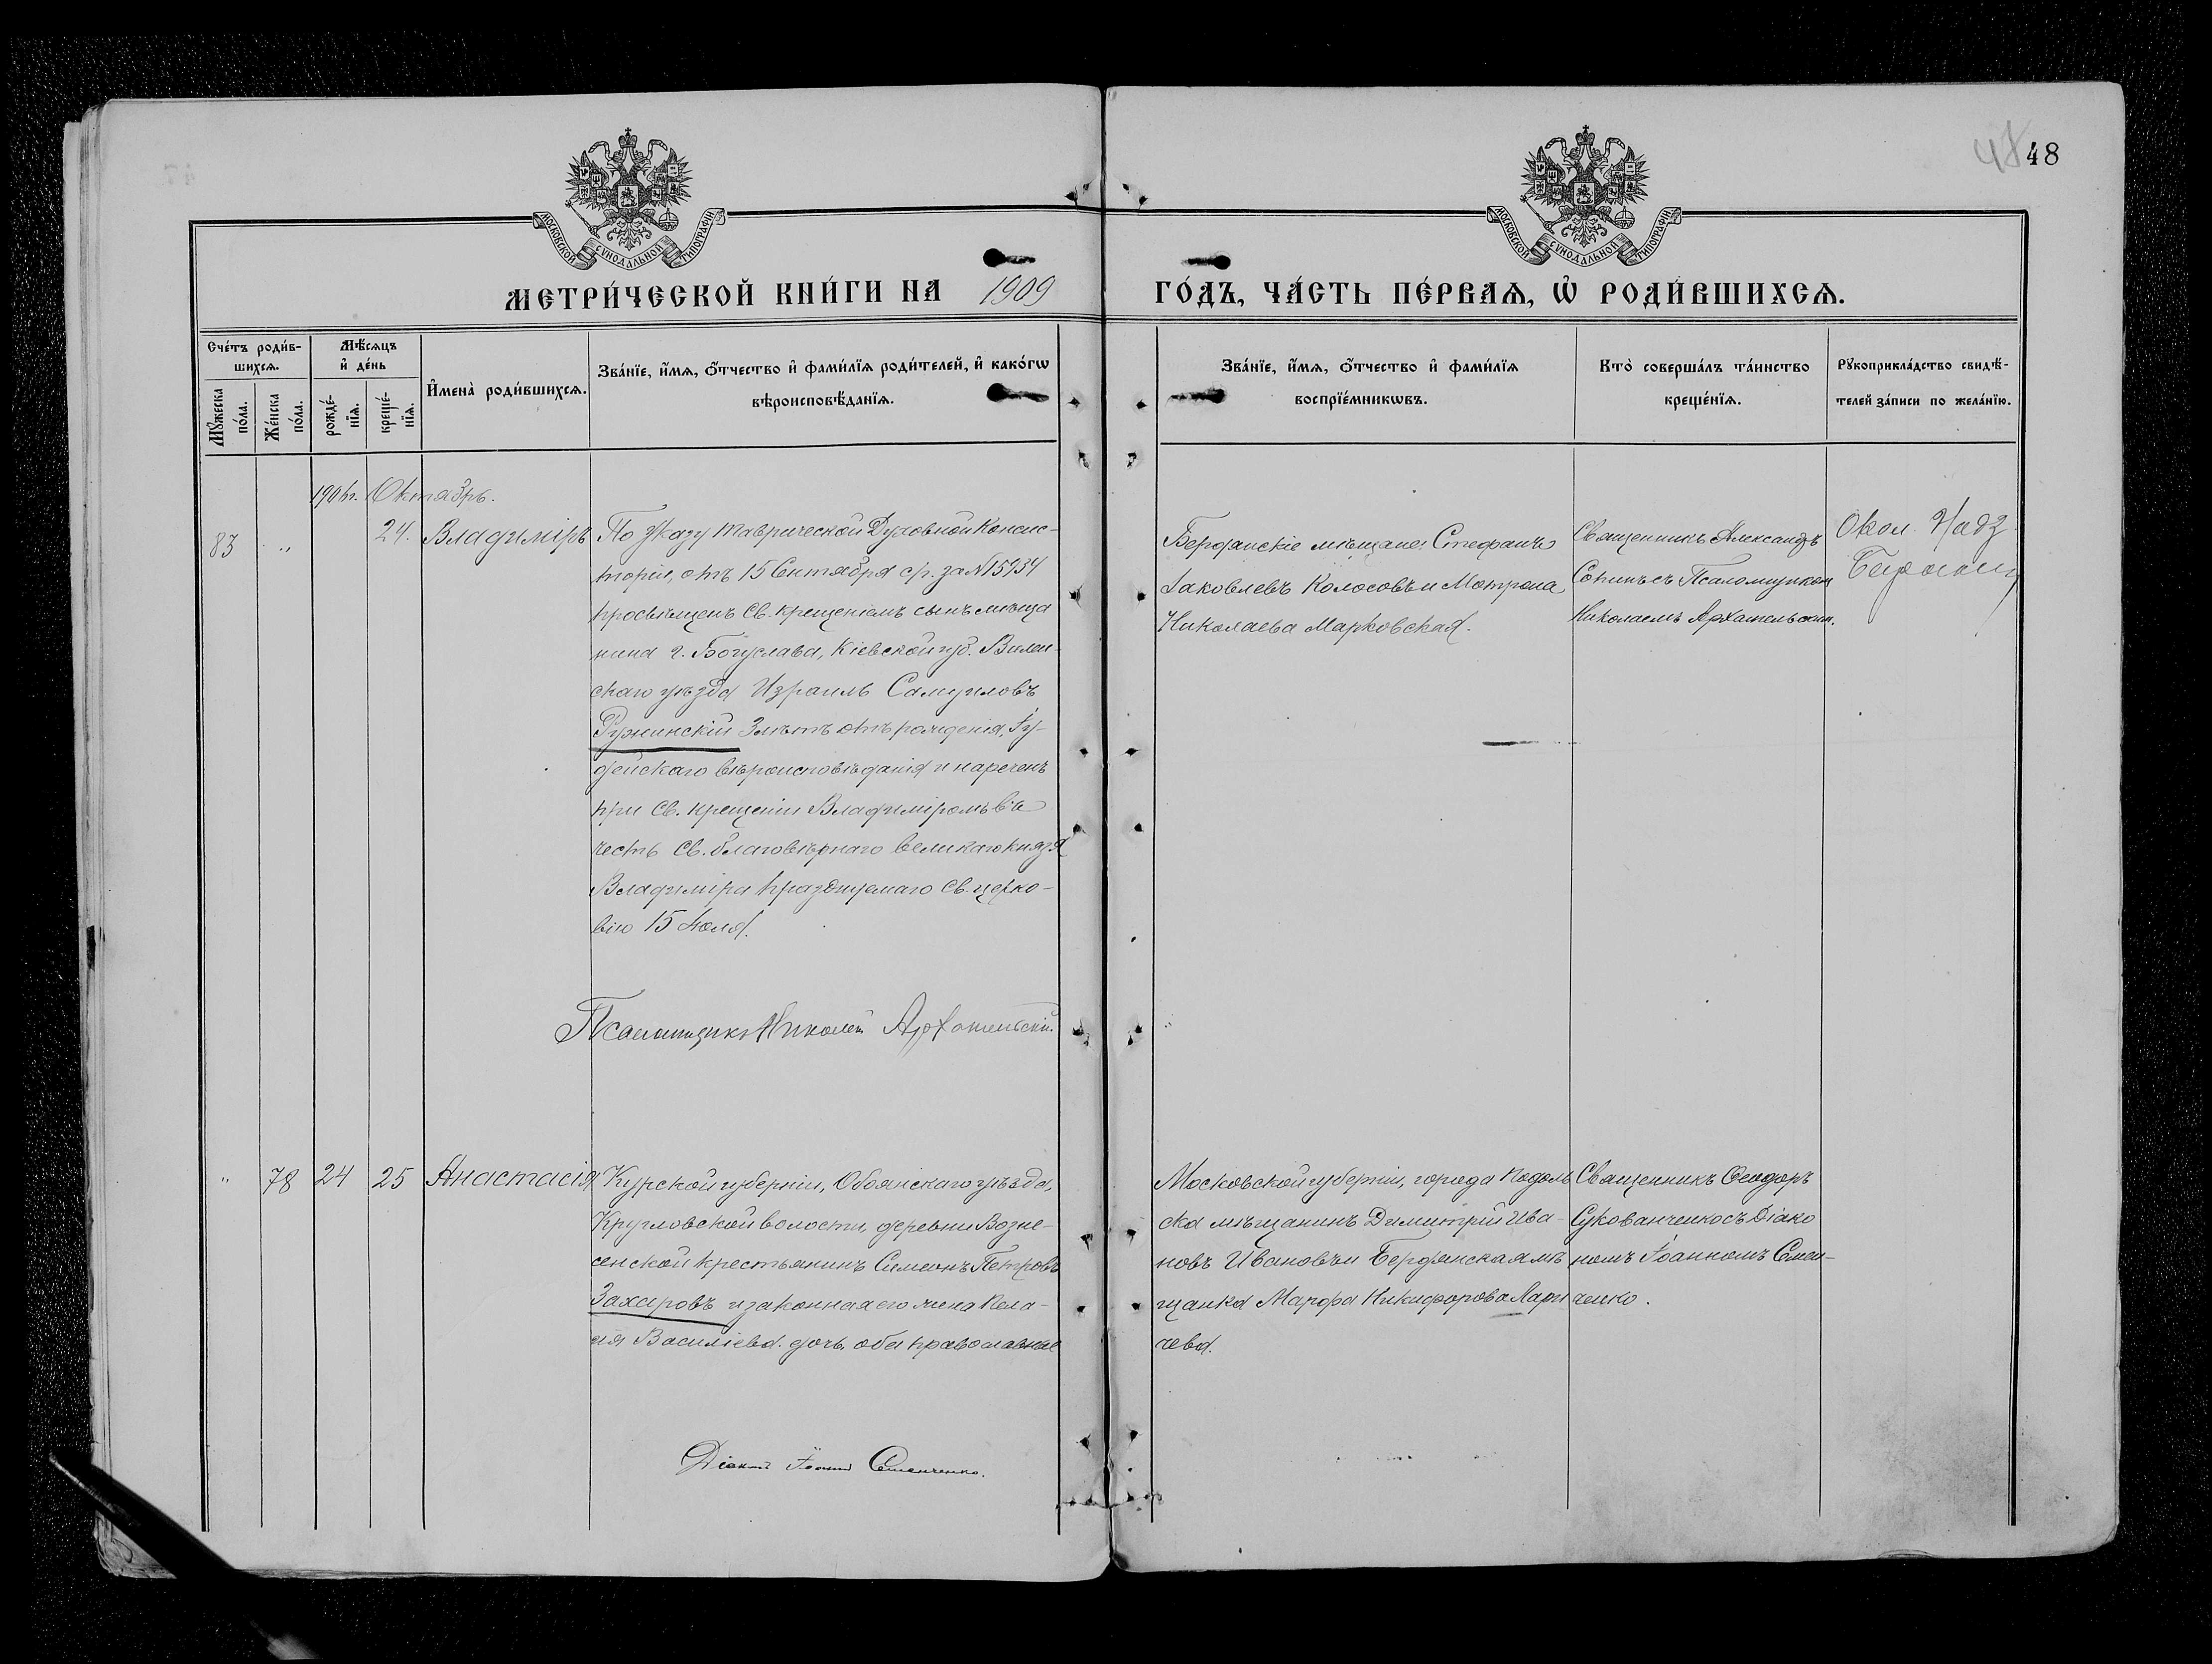 48
48
МОСКОВСКОЙ СѴНОДАЛЬНОЙ ТИПОГРАФІИ
МОСКОВСКОЙ СѴНОДАЛЬНОЙ ТИПОГРАФІИ
МЕТРИ́ЧЕСКОЙ КНИ́ГИ НА 1909
ГО́ДЪ, ЧА́СТЬ ПЕ́РВАѦ, Ѡ РОДИ́ВШИХСѦ.
Сче́тъ роди́в-
шихсѧ.
Мꙋ́жеска
по́ла.
Же́нска
по́ла.
Мѣ́сѧцъ
и҆ де́нь
рожде́-
нїѧ.
креще́-
нїѧ.
И҆мена̀ роди́вшихсѧ.
Зва́нїе, и҆́мѧ, ѻ҆́тчество и҆ фами́лїѧ роди́телей, и҆ како́гѡ
вѣроисповѣ́данїѧ.
Зва́нїе, и҆́мѧ, ѻ҆́тчество и҆ фами́лїѧ
воспрїе́мникѡвъ.
Кто̀ соверша́лъ та́инство
креще́нїѧ.
Рꙋкоприкла́дство свидѣ́-
телей за́писи по жела́нїю.
Октябрь.
83 " 24. Владиміръ
По Указу Таврической Духовной Консис-
торіи, отъ 15 Сентября с/г. за № 15934
просвѣщенъ Св. крещеніемъ сынъ мѣща
нина г. Богуслава, Кіевской губ.
скаго уѣзда Израиль Самуиловъ
Ружинскій 3 лѣтъ отъ рожденія, Іу-
дейскаго вѣроисповѣданія и нареченъ
при Св. крещеніи Владиміромъ въ
честь Св. благовѣрнаго великаго князя
Владиміра празднуемаго Св. церко-
вію 15 Іюля.
Псаломщикъ Николай Архангельскій.
Бердянскіе мѣщане: Стефанъ
Іаковлевъ Колосовъ и Матрона
Николаева Марковская.
Священникъ Александръ
Сопинъ съ Псаломщикомъ
Николаемъ Архангельскимъ.
Окол. Надз.
" 78 24 25 Анастасія
Курской губерніи, Обоянскаго уѣзда,
Кругловской волости, деревни Возне-
сенской крестьянинъ Симеонъ Петровъ
Захаровъ и законная его жена Пела-
гія Василіева. дочь оба православные
Діаконъ Іоаннъ Семенченко.
Московской губерніи, города Подоль
ска мѣщанинъ Димитрій Ива-
новъ Ивановъ и Бердянская мѣ
щанка Марфа Никифорова Лари
чева.
Священникъ Ѳеодоръ
Сукованченко съ Діако
номъ Іоанномъ Семен-
ченко.